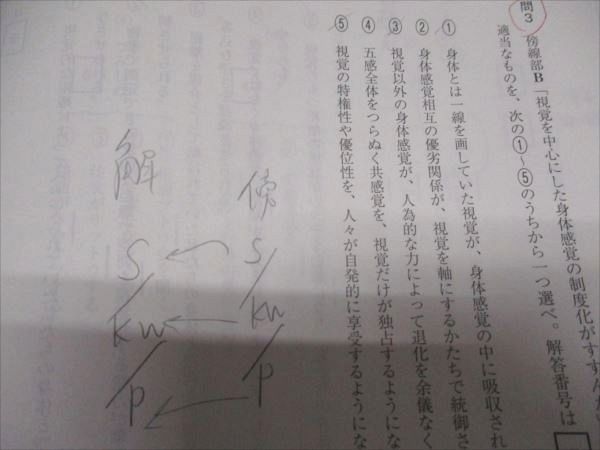 問3 傍線部B「視覚を中心にした身体感覚の制度化がすすんだ
適当なものを、次の①〜⑤のうちから一つ選べ。解答番号は
① 身体とは一線を画していた視覚が、身体感覚の中に吸収され
② 身体感覚相互の優劣関係が、視覚を軸にするかたちで統御さ
③ 視覚以外の身体感覚が、人為的な力によって退化を余儀なく
④ 五感全体をつらぬく共感覚を、視覚だけが独占するようにな
⑤ 視覚の特権性や優位性を、人々が自発的に享受するようにな
傍 S/kw/p
解 S/kw/p